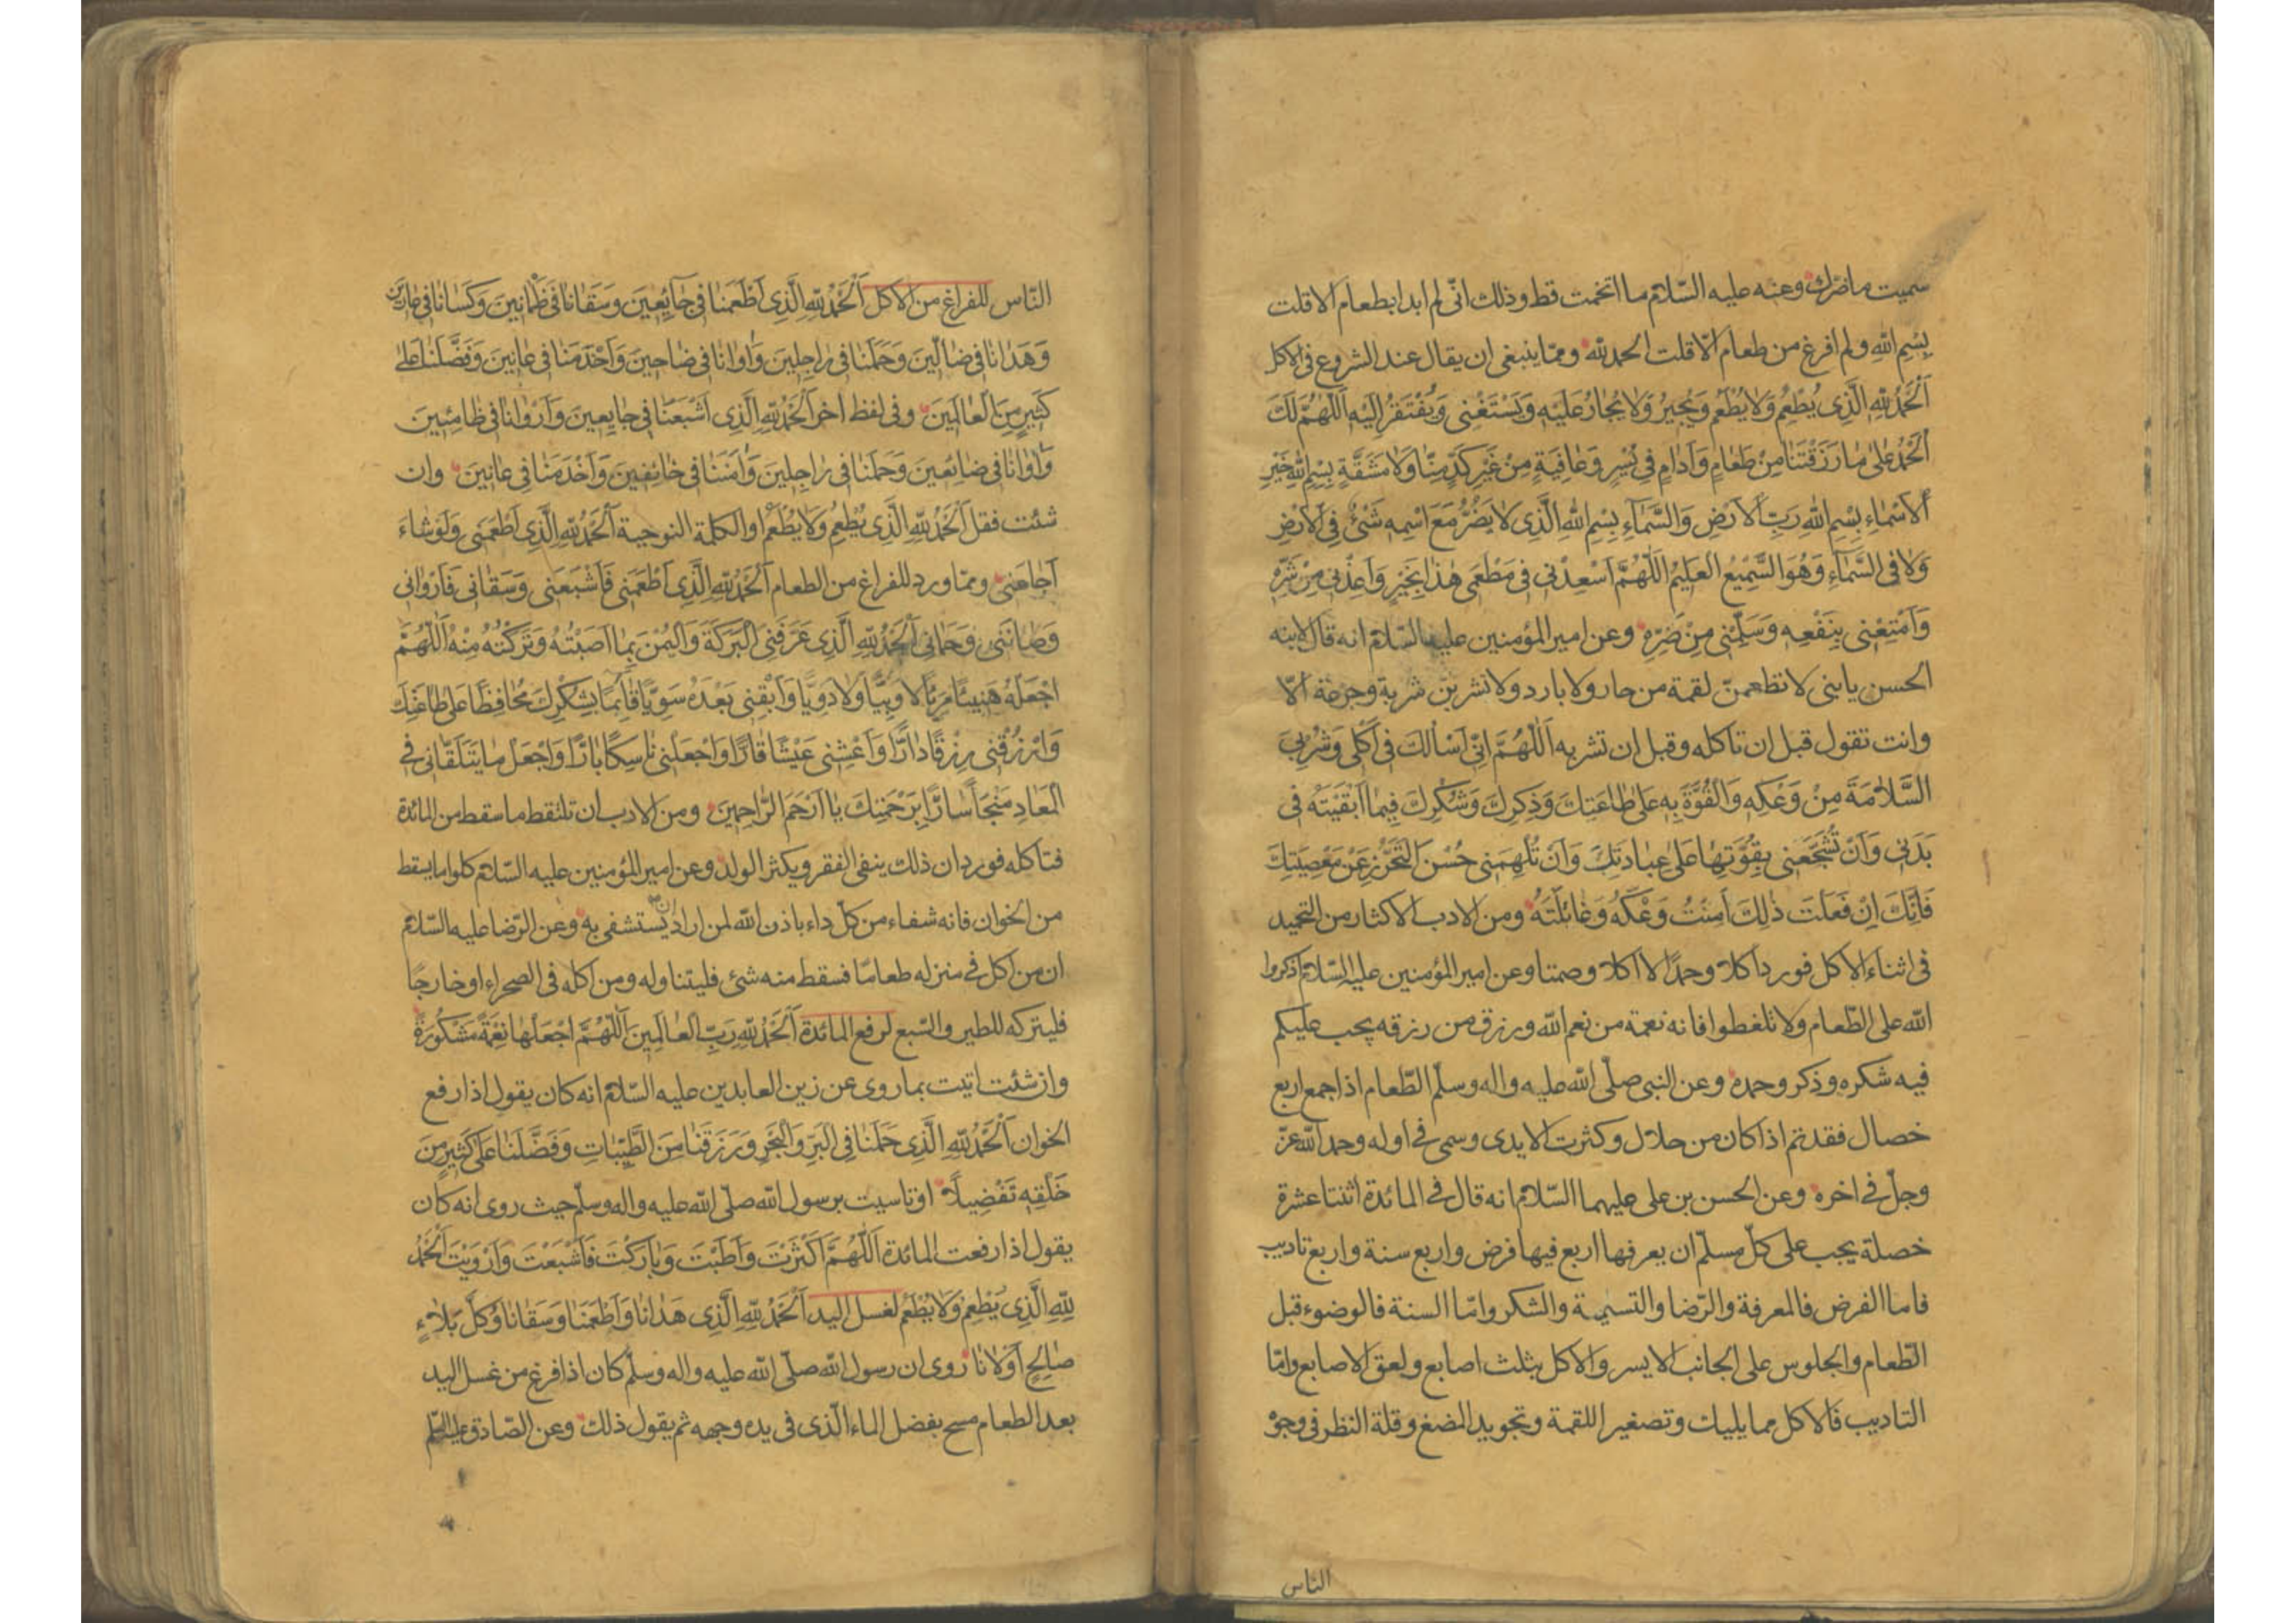 سميت ماضرك وعنه عليه السّلام ما اتخمت قط وذلك انّى لم ابدا بطعام الا قلت
بِسْمِ اللهِ ولم افرغ من طعام الّا قلت الحمد لله ومما ينبغى ان يقال عند الشروع فى الاكل
اَلْحَمْدُ لِلّهِ الَّذِى يُطْعِمُ وَلا يُطْعَمُ وَيُجيرُ وَلا يُجارُ عَلَيْهِ وَيَسْتَغْنى وَيُفْتَقَرُ اِلَيْهِ اَللّهُمَّ لَكَ
اَلْحَمْدُ عَلى ما رَزَقْتَنا مِنْ طَعامٍ وَاَدامٍ فى يُسْرٍ وَعافِيَةٍ مِنْ غَيْرِ كَدٍّ مِنّا وَلا مَشَقَّةٍ بِسْمِ اللهِ خَيْرِ
اَلاَسْماءِ بِسْمِ اللهِ رَبِّ الاَرْضِ وَالسَّماءِ بِسْمِ اللهِ الَّذِى لا يَضُرُّ مَعَ اسْمِهِ شَىْءٌ فِى الاَرْضِ
وَلا فى السَّماءِ وَهُوَ السَّمِيْعُ العَليمُ اَللّهُمَّ اَسْعِدْنى فى مَطْعَمى هذا بِخَيْرِهِ وَاَعِذْنى مِنْ شَرِّهِ
وَاَمْتِعْنى بِنَفْعِهِ وَسَلِّمْنى مِنْ ضَرِّهِ وعن امير المؤمنين عليه السّلام انه قال لابنه
الحسن يا بنى لا تطعمنّ لقمة من حار ولا بارد ولا تشربنّ شربة وجرعة الّا
وانت تقول قبل ان تاكله وقبل ان تشربه اَللّهُمَّ اِنّى اَسْاَلُكَ فى اَكْلى وَشُرْبى
السَّلامَةَ مِنْ وَعْكِهِ وَالْقُوَّةَ بِهِ عَلى طاعَتِكَ وَذِكْرِكَ وَشُكْرِكَ فيما اَبْقَيْتَهُ فى
بَدَنى وَاَنْ تُشَجِّعَنى بِقُوَّتِها عَلى عِبادَتِكَ وَاَنْ تُلْهِمَنى حُسْنَ التَّحَرُّزِ عَنْ مَعْصِيَتِكَ
فَاِنَّكَ اِنْ فَعَلْتَ ذلِكَ اَمِنْتُ وَعْكَهُ وَغائِلَتَهُ ومن الادب الاكثار من التحميد
فى اثناء الاكل فورد اكلا وحمدًا لا اكلا وصمتا وعن امير المؤمنين عليه السّلام اذكروا
الله على الطّعام ولا تلغطوا فانه نعمة من نعم الله ورزق من رزقه يجب عليكم
فيه شكره وذكر وحمده وعن النبى صلّى الله عليه واله وسلّم الطّعام اذا جمع اربع
خصال فقد تم اذا كان من حلال وكثرت الايدى وسمى فى اوله وحمد الله عزّ
وجلّ فى اخره وعن الحسن بن على عليهما السّلام انه قال فى المائدة اثنتا عشرة
خصلة يجب على كلّ مسلم ان يعرفها اربع فيها فرض واربع سنة واربع تاديب
فاما الفرض فالمعرفة والرّضا والتسمية والشكر وامّا السنة فالوضوء قبل
الطّعام والجلوس على الجانب الايسر والاكل بثلث اصابع ولعق الاصابع وامّا
التاديب فالاكل مما يليك وتصغير اللقمة وتجويد المضغ وقلة النظر فى وجوه
الناس
النّاس للفراغ من الاكل اَلْحَمْدُ لِلّهِ الَّذِى اَطْعَمَنا فى جآئِعينَ وَسَقانا فى ظَمْانينَ وَكَسانا فى عارينَ
وَهَدانا فى ضالّينَ وَحَمَلَنا فى راجِلينَ وَاوانا فى ضاحينَ وَاَخْدَمَنا فى عانينَ وَفَضَّلَنا عَلى
كَثيرٍ مِنَ الْعالَمينَ وفى لفظ اخر اَلْحَمْدُ لِلّهِ الَّذِى اَشْبَعَنا فى جايِعينَ وَاَرْوانا فى ظامِئينَ
وَاوانا فى ضائِعينَ وَحَمَلَنا فى راجِلينَ وَامَنَنا فى خائِفينَ وَاَخْدَمَنا فى عانينَ وان
شئت فقل اَلْحَمْدُ لِلّهِ الَّذِى يُطْعِمُ وَلا يُطْعَمُ او الكلمة النوحية اَلْحَمْدُ لِلّهِ الَّذِى اَطْعَمَنى وَلَوْ شاءَ
اَجاعَنى ومما ورد للفراغ من الطعام اَلْحَمْدُ لِلّهِ الَّذِى اَطْعَمَنى فَاَشْبَعَنى وَسَقانى فَاَرْوانى
وَصانَنى وَحَمانى اَلْحَمْدُ لِلّهِ الَّذِى عَرَّفَنِى الْبَرَكَةَ وَالْيُمْنَ بِما اَصَبْتُهُ وَتَرَكْتُهُ مِنْهُ اَللّهُمَّ
اجْعَلْهُ هَنيئًا مَريئًا لا وَبِيًّا وَلا دَوِيًّا وَاَبْقِنى بَعْدَهُ سَوِيًّا قائِمًا بِشُكْرِكَ مُحافِظًا عَلى طاعَتِكَ
وَارْزُقْنى رِزْقًا دارًّا وَاَعِشْنى عَيْشًا قارًّا وَاجْعَلْنى ناسِكًا بارًّا وَاجْعَلْ ما يَتَلَقّانى فى
الْمَعادِ مُنْهِجًا سارًّا بِرَحْمَتِكَ يا اَرْحَمَ الرّاحِمينَ ومن الادب ان تلتقط ما سقط من المائدة
فتاكله فورد ان ذلك ينفى الفقر ويكثر الولد وعن امير المؤمنين عليه السّلام كلوا ما يسقط
من الخوان فانه شفاء من كلّ داء باذن الله لمن اراد ان يستشفى به وعن الرّضا عليه السّلام
ان من اكل فى منزله طعامًا فسقط منه شئ فليتناوله ومن اكله فى الصحراء او خارجًا
فليتركه للطير والسّبع لرفع المائدة اَلْحَمْدُ لِلّهِ رَبِّ الْعالَمينَ اَللّهُمَّ اجْعَلْها نِعْمَةً مَشْكُورَةً
وان شئت اتيت بما روى عن زين العابدين عليه السّلام انه كان يقول اذا رفع
الخوان اَلْحَمْدُ لِلّهِ الَّذِى حَمَلَنا فِى الْبَرِّ وَالْبَحْرِ وَرَزَقَنا مِنَ الطَّيِّباتِ وَفَضَّلَنا عَلى كَثيرٍ مِنْ
خَلْقِهِ تَفْضِيلًا او تاسيت برسول الله صلّى الله عليه واله وسلّم حيث روى انه كان
يقول اذا رفعت المائدة اَللّهُمَّ اَكْثَرْتَ وَاَطَبْتَ وَبارَكْتَ فَاَشْبَعْتَ وَاَرْوَيْتَ اَلْحَمْدُ
لِلّهِ الَّذِى يُطْعِمُ وَلا يُطْعَمُ لغسل اليد اَلْحَمْدُ لِلّهِ الَّذِى هَدانا وَاَطْعَمَنا وَسَقانا وَكُلَّ بَلاءٍ
صالِحٍ اَوْلانا روى ان رسول الله صلّى الله عليه واله وسلّم كان اذا فرغ من غسل اليد
بعد الطعام مسح بفضل الماء الّذى فى يده وجهه ثم يقول ذلك وعن الصّادق عليه السّلم